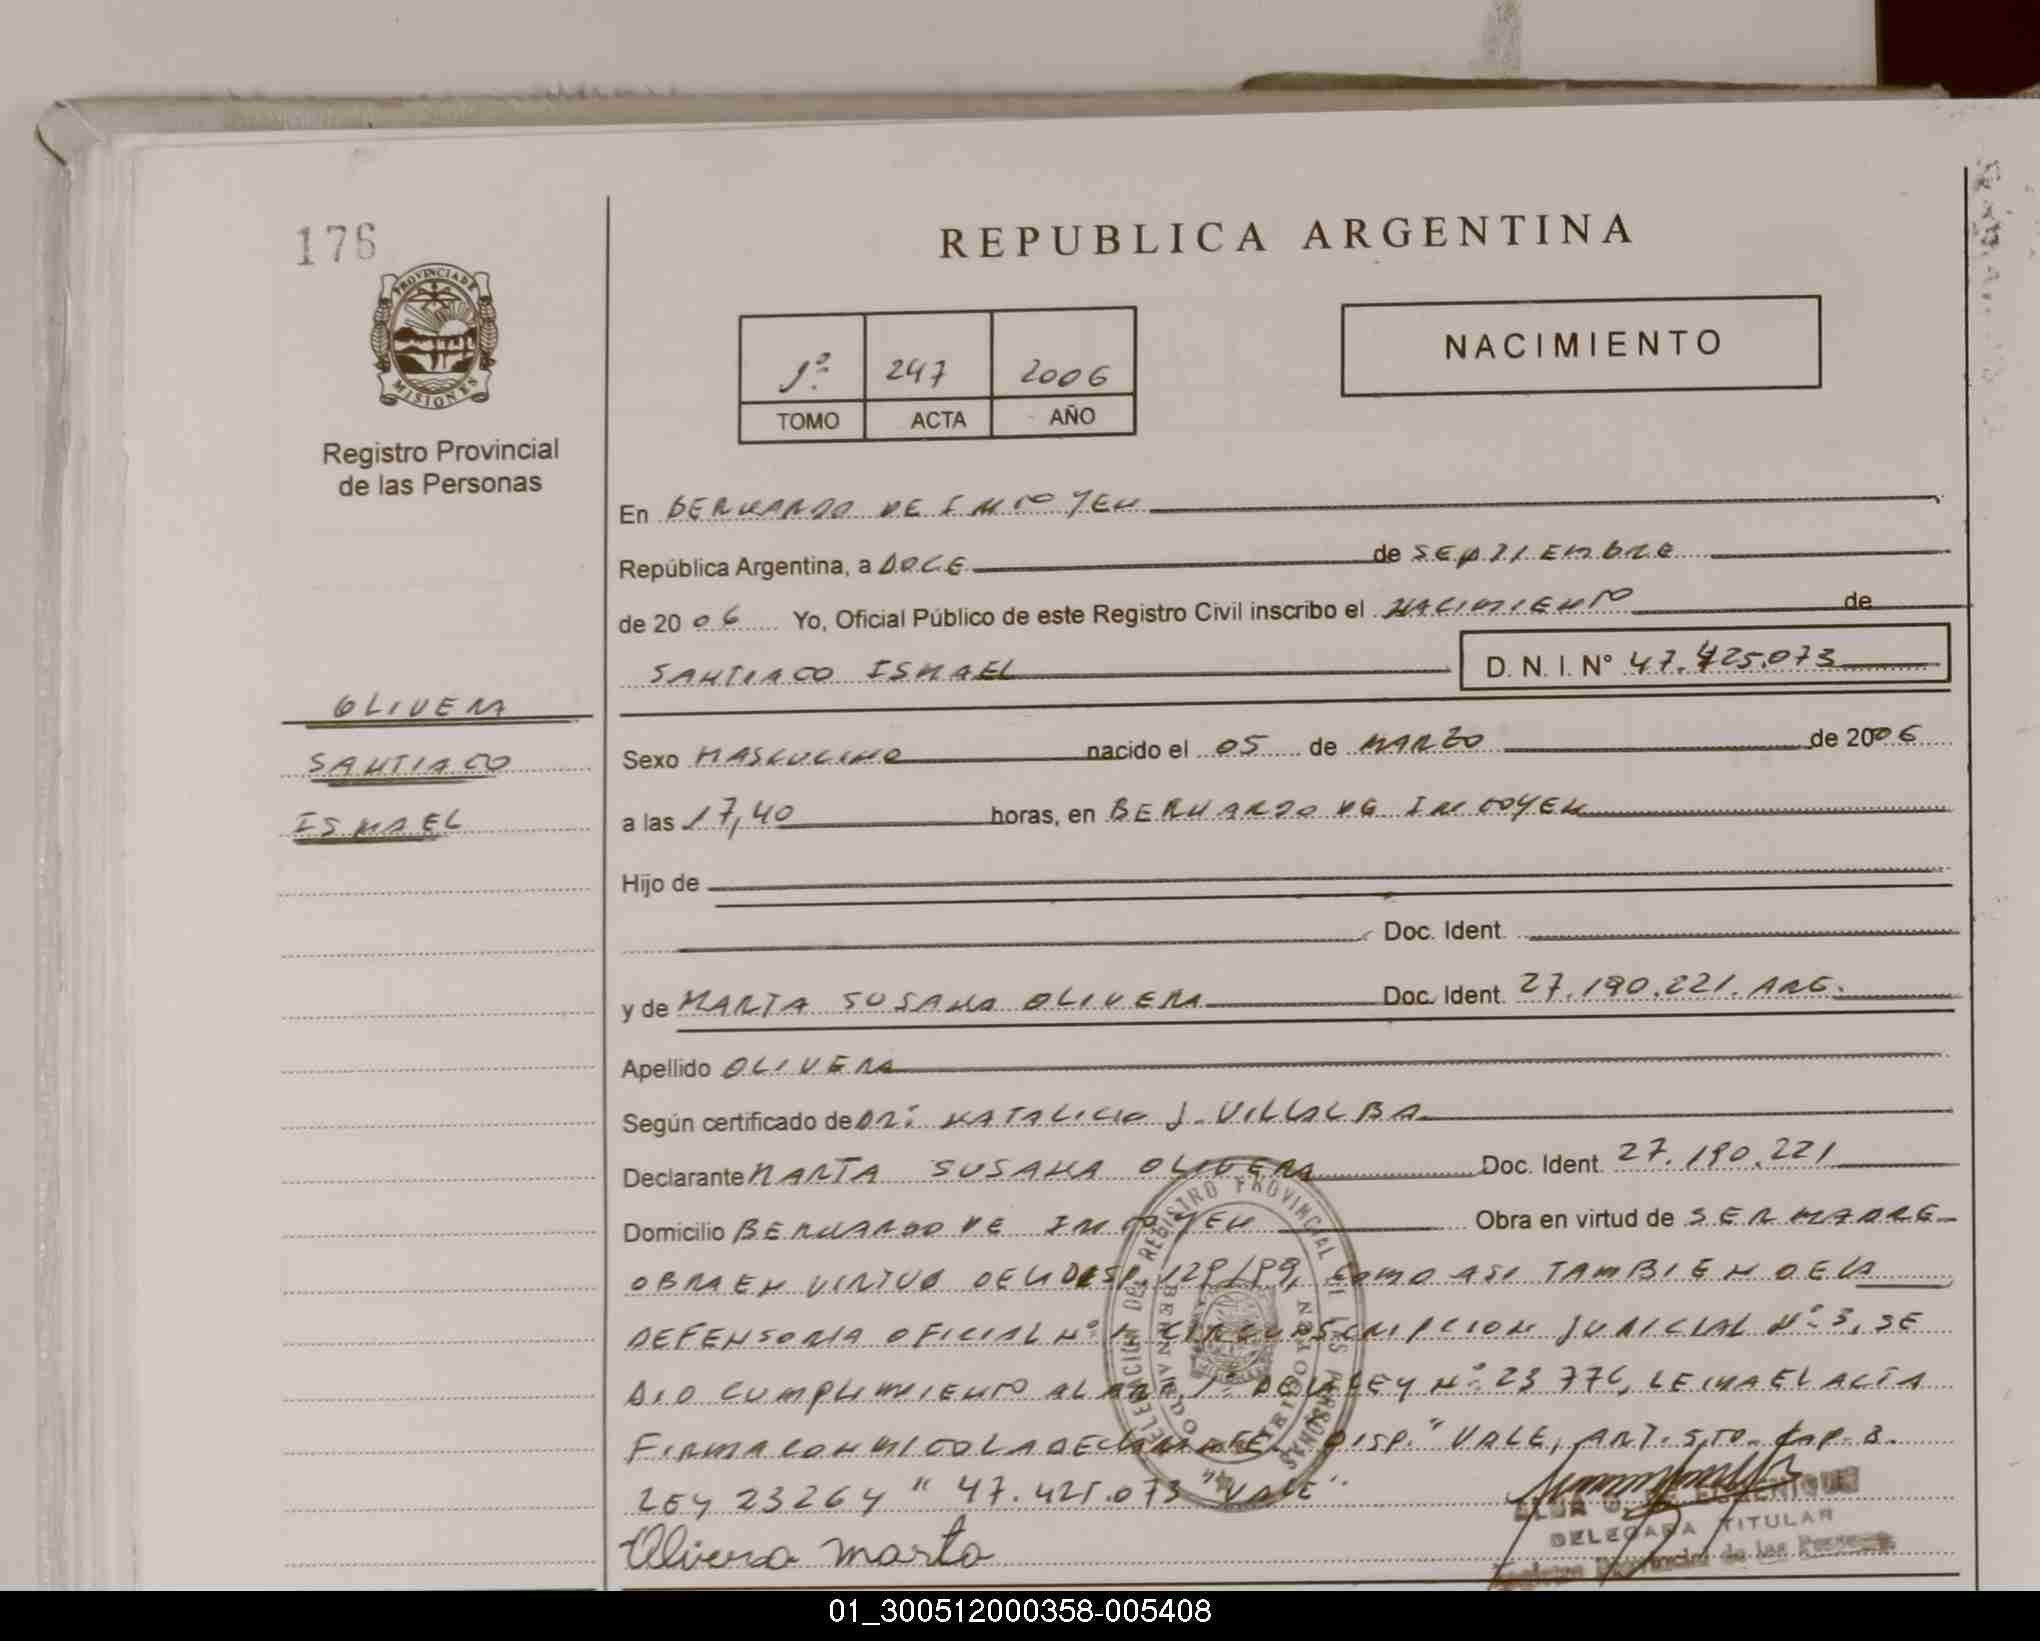 176
PROVINCIA DE
MISIONES
Registro Provincial
de las Personas
REPUBLICA ARGENTINA
1º 247 2006
TOMO ACTA AÑO
NACIMIENTO
En BERNARDO DE IRIGOYEN
República Argentina, a DOCE de SEPTIEMBRE
de 2006 Yo, Oficial Público de este Registro Civil inscribo el NACIMIENTO de
SANTIAGO ISMAEL D. N. I. N° 47.425.073
OLIVERA
SANTIAGO
ISMAEL
Sexo MASCULINO nacido el 05 de MARZO de 2006
a las 17,40 horas, en BERNARDO DE IRIGOYEN
Hijo de
Doc. Ident.
y de MARTA SUSANA OLIVERA Doc. Ident. 27.190.221. ARG.
Apellido OLIVERA
Según certificado de DR: NATALICIO J. VILLALBA
Declarante MARTA SUSANA OLIVERA Doc. Ident. 27.190.221
Domicilio BERNARDO DE IRIGOYEN Obra en virtud de SER MADRE
OBRA EN VIRTUD DE LA DISP. 129/99, COMO ASI TAMBIEN DE LA
DEFENSORIA OFICIAL Nº 1 CIRCUNSCRIPCION JUDICIAL Nº 3, SE
DIO CUMPLIMIENTO AL ART. 1º DE LA LEY Nº 23776, LEIDA EL ACTA
FIRMA CONMIGO LA DECLARANTE. DISP. " VALE, ART. 5TO. CAP. 8.
LEY 23264 " 47.425.073 "VALE".
Olivera Marta
DELEGADA TITULAR
Registro Provincial de las Personas
DELEGACION DEL REGISTRO PROVINCIAL DE LAS PERSONAS
BERNARDO DE IRIGOYEN
01_300512000358-005408